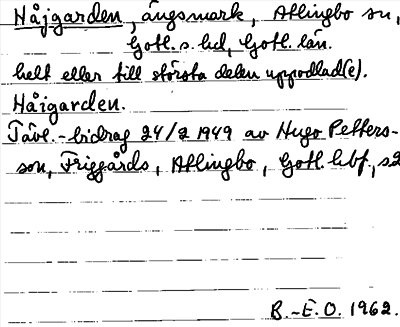 Håjgarden, ängsmark, Atlingbo sn,
Gotl. s. hd, Gotl. län.
helt eller till största delen uppodlad(e).
Håigarden.
Tävl.-bidrag 24/2 1949 av Hugo Petters-
son, Friggårds, Atlingbo, Gotl. hbf, s2
B.-E.O. 1962.